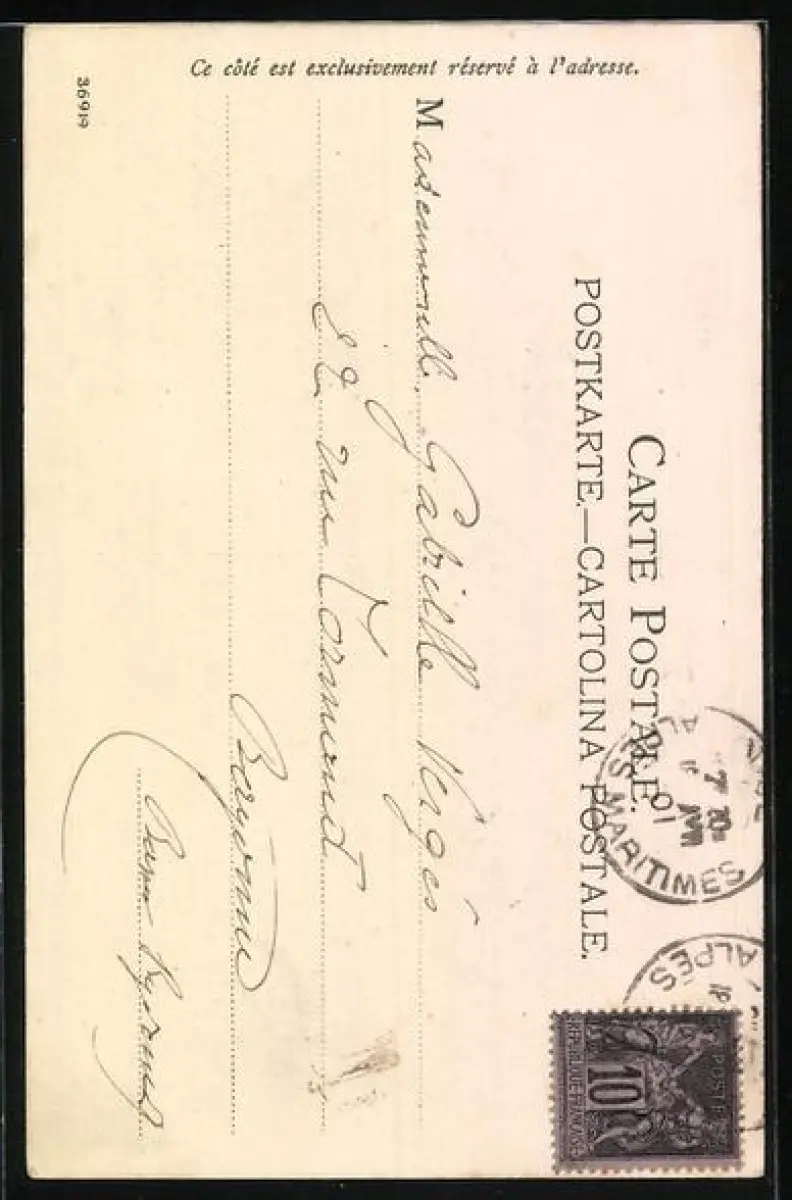 CARTE POSTALE.
POSTKARTE.—CARTOLINA POSTALE.
Ce côté est exclusivement réservé à l'adresse.
Mademoiselle Gabrielle Vergès
rue
Bayonne
Basses Pyrénées
36919
7 AVR 01
ALPES MARITIMES
ALPES
POSTES
10
REPUBLIQUE FRANÇAISE